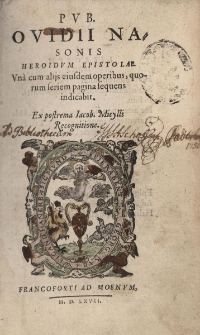 PVB.
OVIDII NA-
SONIS
HEROIDVM EPISTOLAE.
Vnà cum alijs eiusdem operibus, quo-
rum seriem pagina sequens
indicabit.
Ex postrema Iacob. Micylli
Recognitione.
FRANCOFORTI AD MOENVM,
M. D. LXVII.